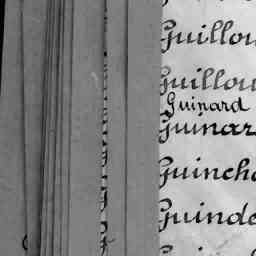 Guillou
Guillou
Guinard
Guinar
Guinch
Guinde